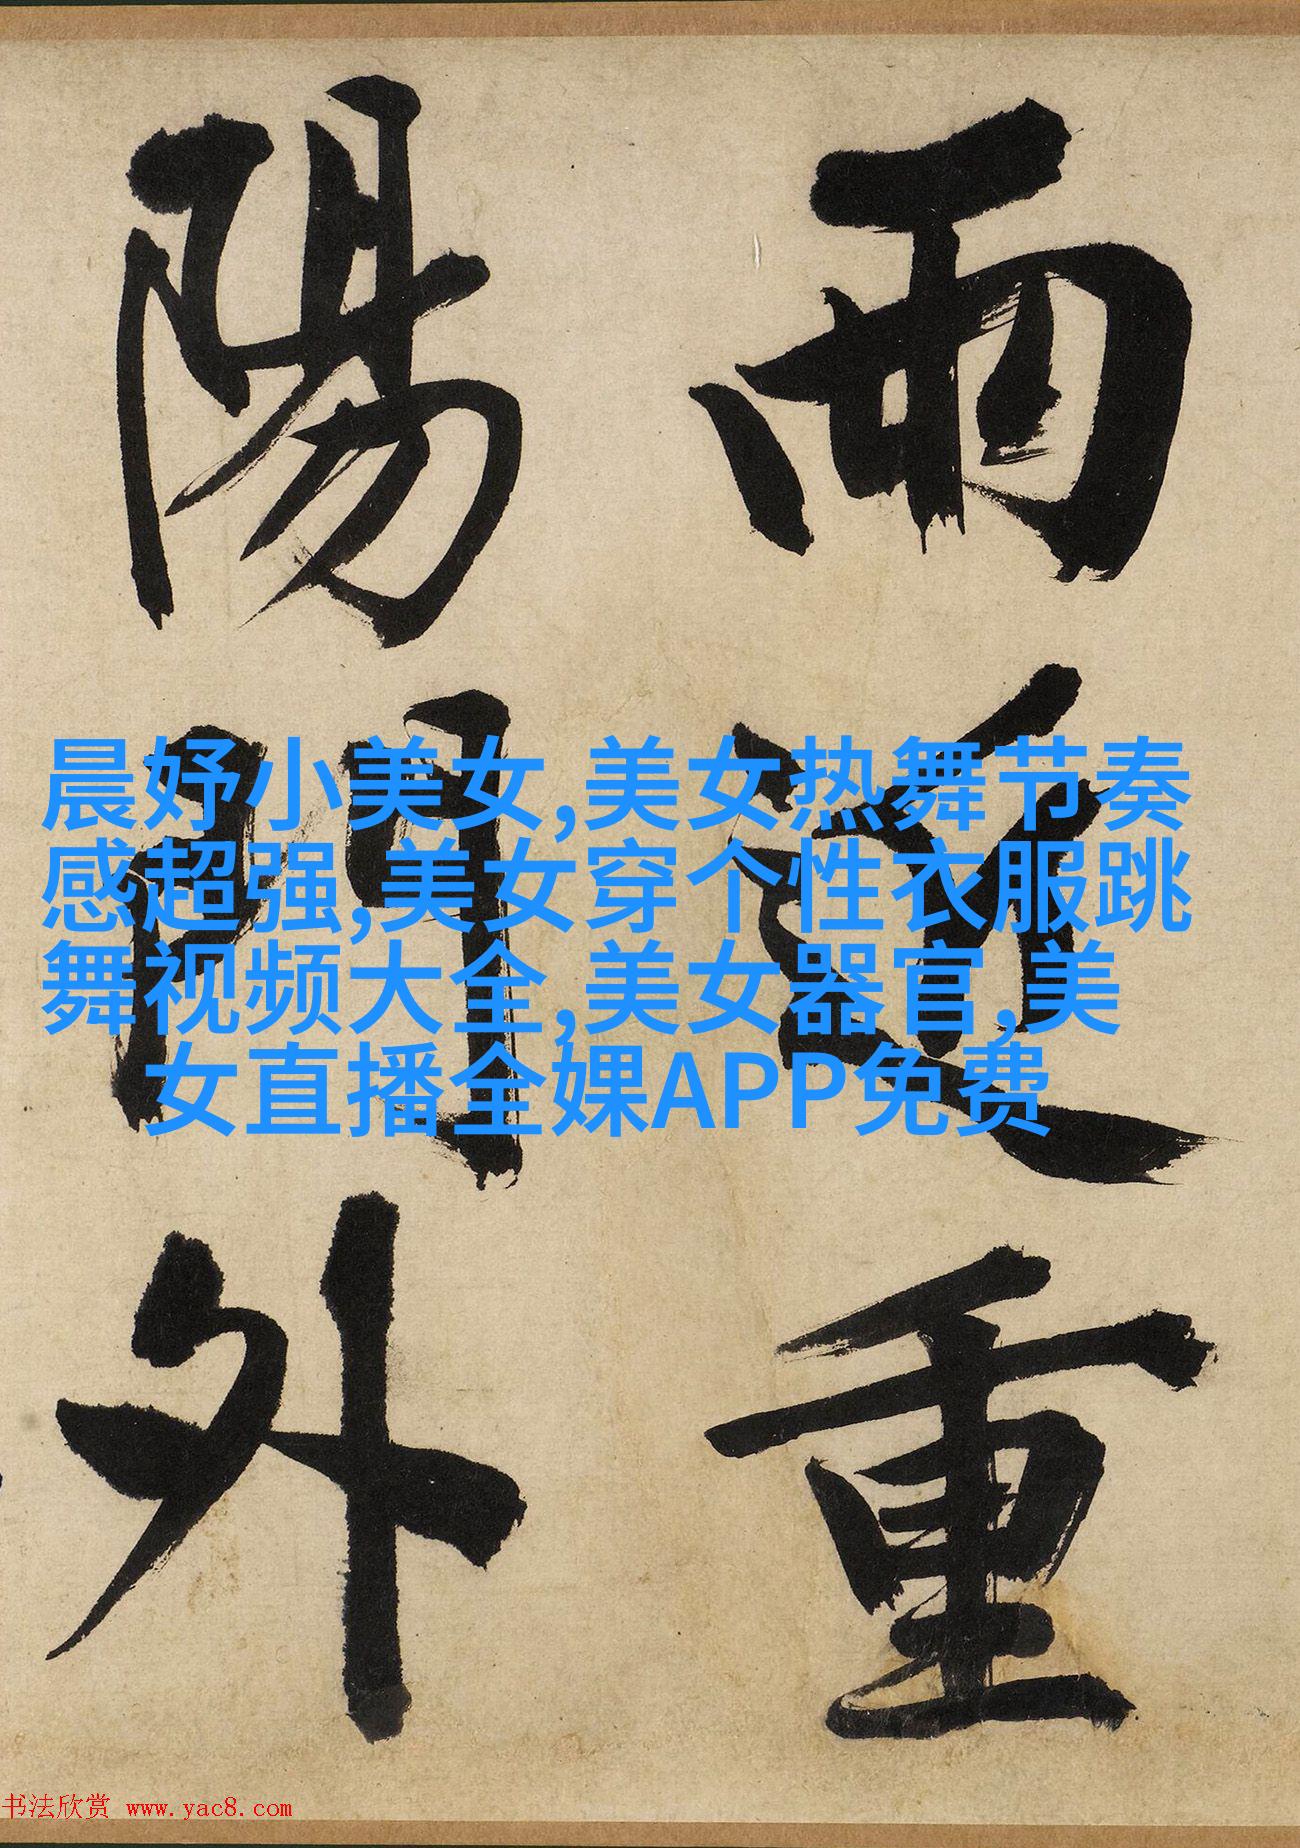 雨近重
陽門外
晨妤小美女,美女热舞节奏
感超强,美女穿个性衣服跳
舞视频大全,美女器官,美
女直播全婐APP免费
书法欣赏 www.yac8.com